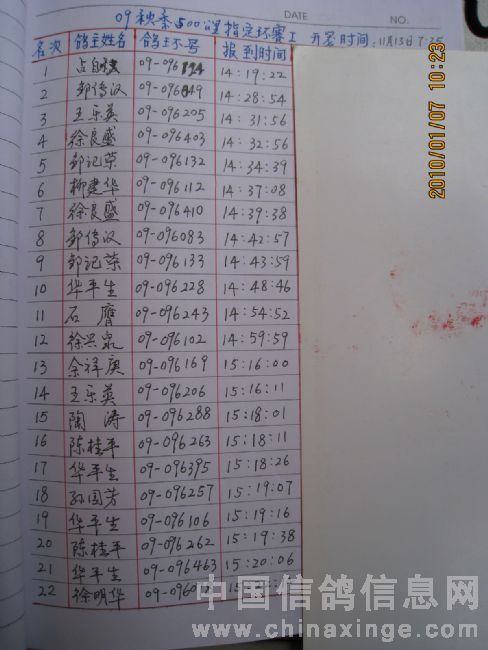 DATE NO.
09秋季500公里指定环赛I 开笼时间:11月13日7:35
名次 鸽主姓名 鸽环号 报到时间
1 09-096 14:19:22
2 邹传汉 09-096 49 14:28:54
3 王乐英 09-096205 14:31:56
4 徐良盛 09-096403 14:32:56
5 邹记荣 09-096132 14:34:39
6 柳建华 09-096112 14:37:08
7 徐良盛 09-096410 14:39:38
8 邹传汉 09-096083 14:42:57
9 邹记荣 09-096133 14:43:59
10 华平生 09-096228 14:48:46
11 石鹰 09-096243 14:54:52
12 徐兴泉 09-096102 14:59:59
13 余祥庚 09-096169 15:16:00
14 王乐英 09-096206 15:16:11
15 陶涛 09-096288 15:18:01
16 陈桂平 09-096263 15:18:11
17 华平生 09-096395 15:18:26
18 孙国芳 09-096257 15:19:07
19 华平生 09-096106 15:19:16
20 陈桂平 09-096262 15:19:38
21 华平生 09-096463 15:20:06
22 徐明华 09-096
2010/01/07 10:23
中国信鸽信息网
www.chinaxinge.com